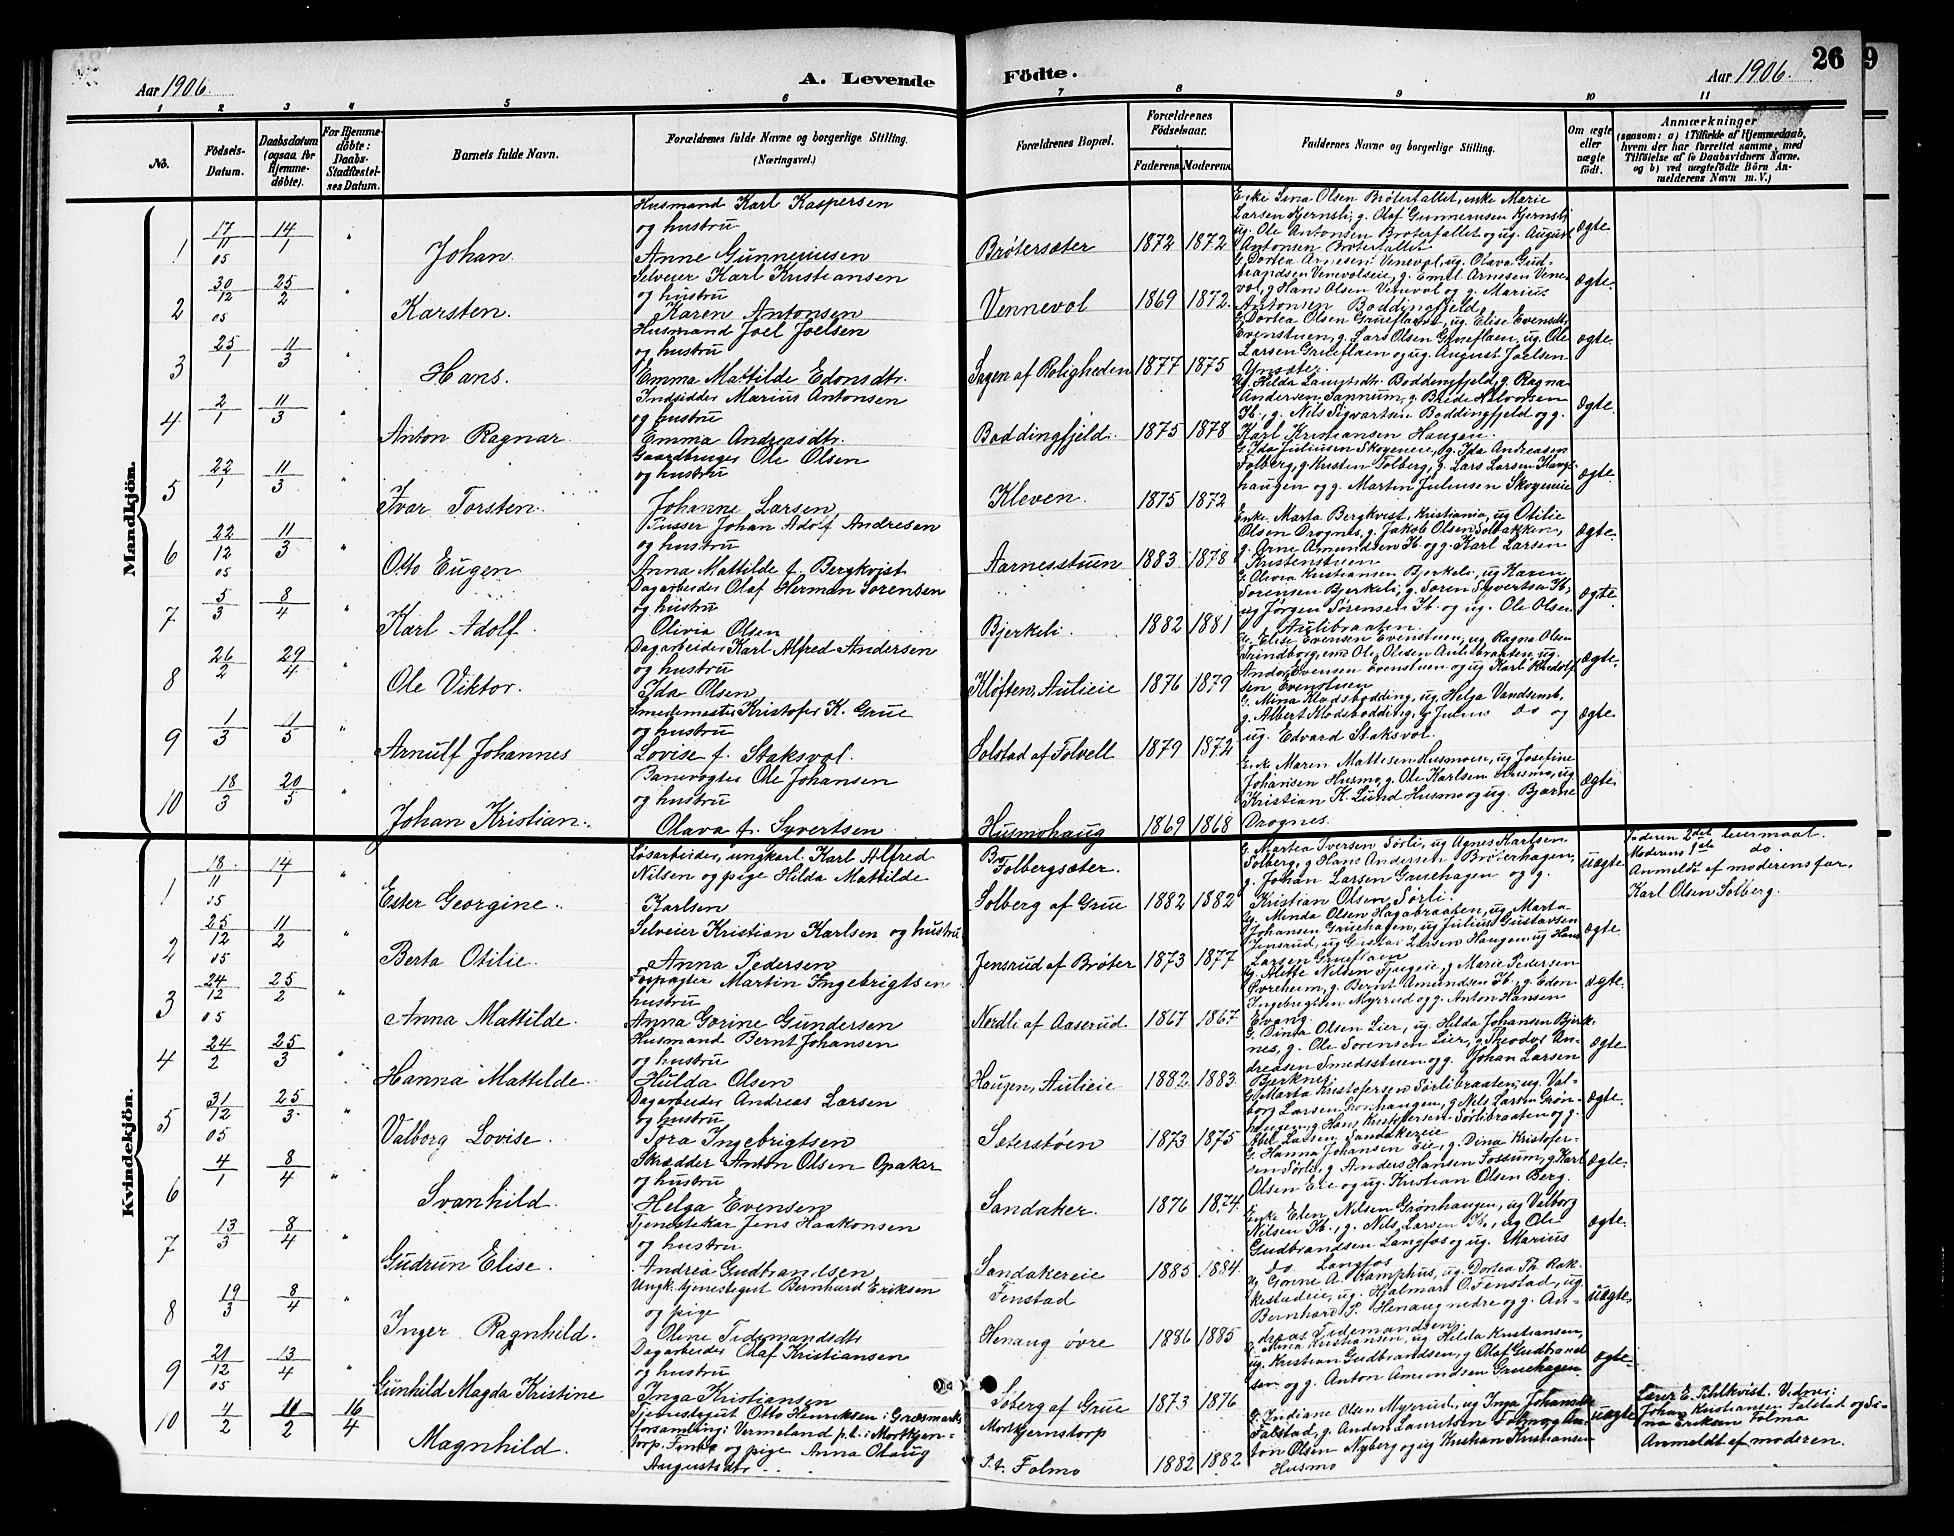 Aar 1906. A. Levende Födte. Aar 1906. 26 9
1 2 3 4 5 6 7 8 9 10 11
No.
Födsels-
Datum.
Daabsdatum
(ogsaa for
Hjemme-
döbte).
For Hjemme-
döbte:
Daabs-
Stadfæstel-
ses Datum.
Barnets fulde Navn.
Forældrenes fulde Navne og borgerlige Stilling.
(Næringsvei.)
Forældrenes Bopæl.
Forældrenes
Födselsaar.
Faderens Moderens
Faddernes Navne og borgerlige Stilling.
Om ægte
eller
uægte
født.
Anmærkninger
(saasom: a) i Tilfælde af Hjemmedaab,
hvem der har forrettet samme, med
Tilföielse af to Daabsvidners Navne.
og b) ved uægtefödte Börn An-
melderens Navn m. V.)
Mandkjön.
1 17/11 05 14/1 " Johan
Husmand Karl Kaspersen
og hustru
Anne Gunneriusen
Brøtersæter 1872 1872
Enke Lina Olsen Brøterfallet, enke Marie
Larsen Kjernsli, g. Olaf Gunnerusen Kjernsli
ug. Ole Antonsen Brøterfallet og ug. August
Antonsen Brøterfallet
ægte
2 30/12 05 25/2 " Karsten.
Selveier Karl Kristiansen
og hustru
Karen Antonsen
Vennevol 1869 1872.
G. Dortea Arnesen Venevol, ug. Olava Gud-
brandsen Venevolseie, g. Emil Arnesen Vene-
vol, g Hans Olsen Venevol og g. Marius
Antonsen Boddingfjeld
ægte.
3 25/1 11/3 " Hans.
Husmand Joel Joelsen
og hustru
Emma Mattilde Edonsdtr.
Sagen af Roligheden 1877 1875
G. Dortea Olsen Grueflaen, ug. Elise Evensdtr.
Evenstuen, g. Lars Olsen Grueflaen, ug. Ole
Larsen Grueflaen og ug. August Joelsen
ægte.
4 2/1 11/3 " Anton Ragnar
Indsidder Marius Antonsen
og hustru
Emma Andreasdtr.
Boddingfjeld. 1875 1878
Ug. Hilda Boddingfjeld, g. Ragna
Andersen Sannum, g. Brede Halvorsen
Ib., g. Nils Sigvartsen Boddingfjeld og g.
Karl Kristiansen Haugen.
ægte.
5 22/1 11/3 " Ivar Torsten.
Gaardbruger Ole Olsen
og hustru
Johanne Larsen
Kleven. 1875 1872
G. Ida Juliusen Skogeneie, g. Ida Andreasen
Folberg, g. Kristen Folberg, g. Lars Larsen
haugen og g. Martin Juliusen Skogeneie
ægte.
6 22/12 05 11/3 " Otto Eugen
Pusser Johan Adolf Andresen
og hustru
Anna Mattilde f. Bergkvist
Aarnesstuen 1883 1878
Enke Marta Bergkvist, Kristiania, ug Otilie
Olsen Drognes, g. Jakob Olsen Solbakken,
g. Arne Amundsen Ib. og g. Karl Larsen
Kristenstuen
ægte.
7 5/3 8/4 " Karl Adolf.
Dagarbeider Olaf Herman Sørensen
og hustru
Olivia Olsen
Bjerkeli. 1882 1881
G. Olivia Kristiansen Bjerkeli, ug Karen
Sørensen Bjerkeli, g. Søren Syvertsen Ib.,
ug Jørgen Sørensen Ib. og ug. Ole Olsen
Aulibraaten.
ægte.
8 26/2 29/4 " Ole Viktor.
Dagarbeider Karl Alfred Andersen
og hustru
Ida Olsen
Kløften, Aulieie 1876 1879
Ug. Elise Evensen Evenstuen, ug Ragna Olsen
Trindborg, enm. Ole Olesen Aulibraaten, ug.
Andor Evensen Evenstuen og ug Karl Rudolf
sen Evenstuen
ægte.
9 1/3 11/5 " Arnulf Johannes
Smedemester Kristofer K. Grue
og hustru
Lovise f. Staksvol.
Solstad af Folvell 1879 1872
G. Mina Klodsbodding, ug. Helga Vandsemb,
g. Albert Klodsbodding, g Julius do og
ug. Edvard Staksvol.
ægte.
10 18/3 20/5 " Johan Kristian.
Banevogter Ole Johansen
og hustru
Olava f. Syvertsen
Husmohaug 1869 1868
Enke Maren Mattisen Husmoen, ug Josefine
Johansen Husmo, g. Ole Karlsen Husmo, ug
Kristian K. Lund Husmo og ug. Bjarne
Drognes.
ægte.
Kvindekjön.
1 18/11 05 14/1 " Ester Georgine.
Løsarbeider, ungkarl. Karl Alfred
Nilsen og pige Hilda Mattilde
Karlsen
Folbergsæter.
Solberg af Grue 1882 1882
G. Martea Iversen Sørli, ug Agnes Karlsen
Solberg, g Hans Andersen Brøterhagen,
g. Johan Larsen Gruehagen og g.
Kristian Olsen Sørli.
uægte
Faderen 2det leiermaal.
Moderens 1ste do.
Anmeldt af moderens far,
Karl Olsen Solberg.
2 25/12 05 11/2 " Berta Otilie.
Selveier Kristian Karlsen og hustru
Anna Pedersen
Jensrud af Brøter 1873 1877
Ug. Minda Olsen Hagabraaten, ug. Marta
Johansen Gruehagen, ug Julius Gustavsen
Jensrud, ug Gustav Larsen Haugen ug Hans
Larsen Grueflaen
ægte
3 24/12 05 25/2 " Anna Mattilde.
Forpagter Martin Ingebrigtsen
hustru
Anna Gorine Gundersen
Nordli af Aaserud. 1867 1867
Ug. Alette Nilsen, g Marie Pedersen
Øvreheim, g. Bernt Amundsen Ib., g. Edon
Ingebrigtsen Myrrud og g. Anton Hansen
Evang.
ægte.
4 24/2 25/3 " Hanna Mattilde.
Husmand Bernt Johansen
og hustru
Hulda Olsen
Haugen, Aulieie 1882 1883.
G. Dina Olsen Lier, ug. Hilda Johansen Bjerk-
nes, g. Ole Sørensen Lier, g. Theodor An-
dreasen Smedsstuen og g. Johan Larsen
Berknes.
ægte.
5 31/12 05 25/3 " Valborg Lovise.
Dagarbeider Andreas Larsen
og hustru
Tora Ingebrigtsen
Sæterstøen 1873 1875
G. Marta Kristofersen Sørlibraaten, ug. Val-
borg Larsen Grønhaugen, g Nils Larsen Grøn-
haugen, g Hans Kristofersen Sørlibraaten og g.
Abel Larsen Sandakereie
ægte.
6 4/1 8/4 " Svanhild.
Skrædder Anton Olsen Opaker
og hustru
Helga Evensen
Sandaker. 1876 1874.
G. Hanna Johansen Eie, g. Dina Kristofer-
sen Sørli, g Anders Hansen Fossum, g Karl
Olsen Eie og ug. Kristian Olsen Berg.
ægte.
7 13/3 8/4 " Gudrun Elise.
Tjenestekar Jens Haakonsen
og hustru
Andrea Gudbrandsen
Sandakereie 1885 1884.
Enke Elen Nilsen Grønhaugen, ug Valborg
Nilsen Ib., g. Nils Larsen Ib., ug Ole
Gudbrandsen Langfos og ug. Marius
do Langfos
ægte.
8 19/3 8/4 " Inger Ragnhild.
Ungk. tjenestegut Bernhard Eriksen
og pige
Oline Tidemandsdtr
Fenstad
Henaug øvre 1886 1885
Ug Gorine A. Kamphus, ug. Dortea Th. Rak-
kestadeie, ug. Hjalmar O. Fenstad, ug.
Bernhard P. Henaug nedre og g. An-
dreas Tidemandsen.
uægte.
9 21/12 05 13/4 " Gunhild Magda Kristine
Dagarbeider Olaf Kristiansen
og hustru
Inga Kristiansen
Søberg af Grue 1873 1876
G. Mina Kristiansen, ug Hilda Kristiansen,
ug. Kristian Gudbrandsen, g Olaf Gudbrand
sen og g. Anton Amundsen Gruehagen
ægte.
10 4/2 11/2 16/4 Magnhild.
Tjenestegut Otto Henriksen i Græsmark
forsamling i Vermeland p.t. i Mortkjern-
torp, og pige Anna Olaug
Augustsdtr.
Mortkjernstorp
P.t. Folmo 1882 1882
G. Indiane Olsen Myrrud, ug Inga Johansdtr
Falstad, g. Anders Lauritsen Folmo, g An-
ton Olsen Nyberg og ug Kristian Kristiansen
Husmo
uægte
Lærer E. Pihlkvist. Vidner:
Johan Kristiansen Falstad og Si-
na Eriksen Folmo
Anmeldt af moderen.